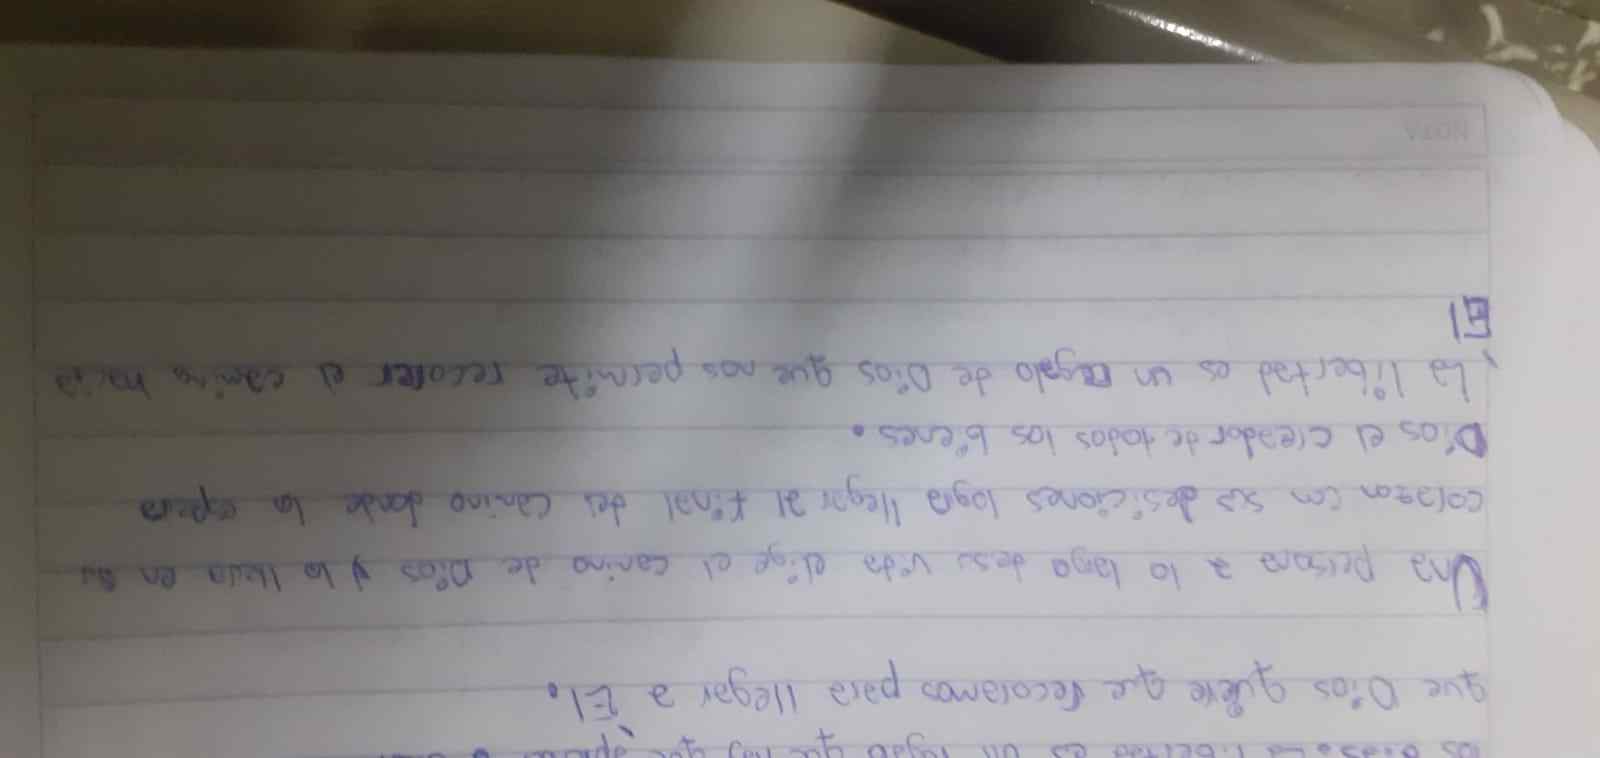 los dias. La libertad es un regalo que hay que
que Dios quiere que recoramos para llegar a Él.
Una persona a lo largo de su vida elige el camino de Dios y lo lleva en su
corazon con sus desiciones logra llegar al final del camino donde lo espera
Dios el creador de todos los bienes.
La libertad es un regalo de Dios que nos permite recorrer el camino hacia
El
NOTA